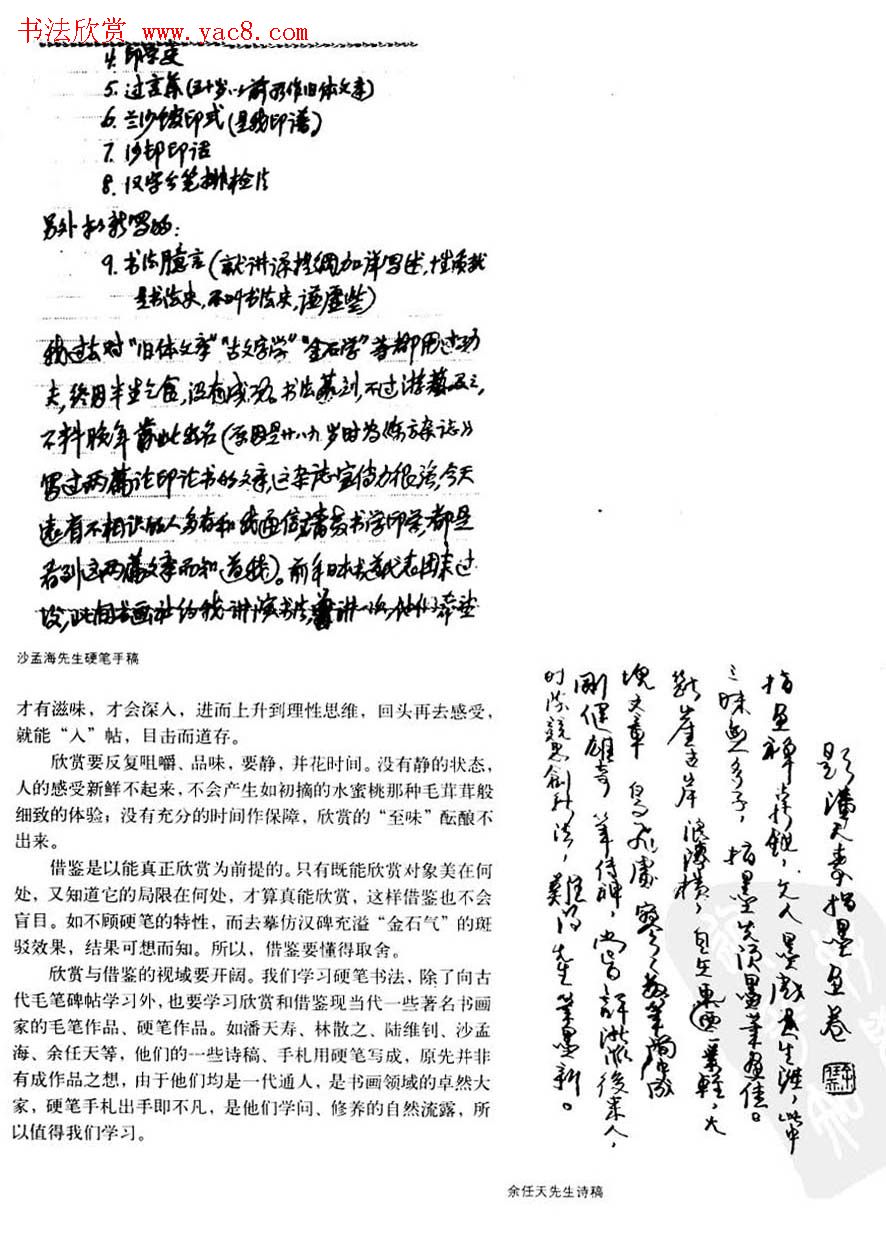 书法欣赏 www.yac8.com
4. 印学史
5. 过言集(五十岁以前所作旧体文章)
6. 兰沙馆印式(是我印谱)
7. 沙邨印话
8. 汉字分笔排检片
另外拟新写的:
9. 书法臆言(就讲课提纲加详写述,性质就
是书法史,不叫书法史,谦虚些)
我过去对“旧体文章”“古文字学”“金石学”等都用过功
夫,终因半生乞食,没有成功。书法篆刻,不过游艺及之,
不料晚年以此出名(原因是廿八九岁时为东方杂志
写过两篇论印论书的文章,这杂志宣传力很强,今天
还有不相识的人多有和我通信请教书学印学,都是
看到这两篇文章而知道我)。前年日本书道代表团来过
沙孟海先生硬笔手稿
才有滋味,才会深入,进而上升到理性思维,回头再去感受,
就能“入”帖,目击而道存。
欣赏要反复咀嚼、品味,要静,并花时间。没有静的状态,
人的感受新鲜不起来,不会产生如初摘的水蜜桃那种毛茸茸般
细致的体验;没有充分的时间作保障,欣赏的“至味”酝酿不
出来。
借鉴是以能真正欣赏为前提的。只有既能欣赏对象美在何
处,又知道它的局限在何处,才算真能欣赏,这样借鉴也不会
盲目。如不顾硬笔的特性,而去摹仿汉碑充溢“金石气”的斑
驳效果,结果可想而知。所以,借鉴要懂得取舍。
欣赏与借鉴的视域要开阔。我们学习硬笔书法,除了向古
代毛笔碑帖学习外,也要学习欣赏和借鉴现当代一些著名书画
家的毛笔作品、硬笔作品。如潘天寿、林散之、陆维钊、沙孟
海、余任天等,他们的一些诗稿、手札用硬笔写成,原先并非
有成作品之想,由于他们均是一代通人,是书画领域的卓然大
家,硬笔手札出手即不凡,是他们学问、修养的自然流露,所
以值得我们学习。
题潘天寿指墨画卷
三昧无多子,指墨先须墨笔佳。
断崖古岸浪纵横,
块文章
刚健雄奇笔传神,后来人,
时流竞思创新法,难得先生笔墨新。
余任天先生诗稿